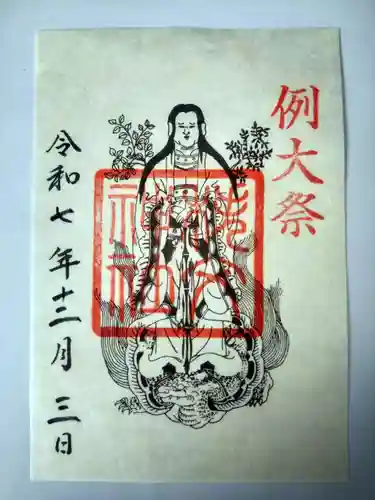 例大祭
令和七年十二月三日